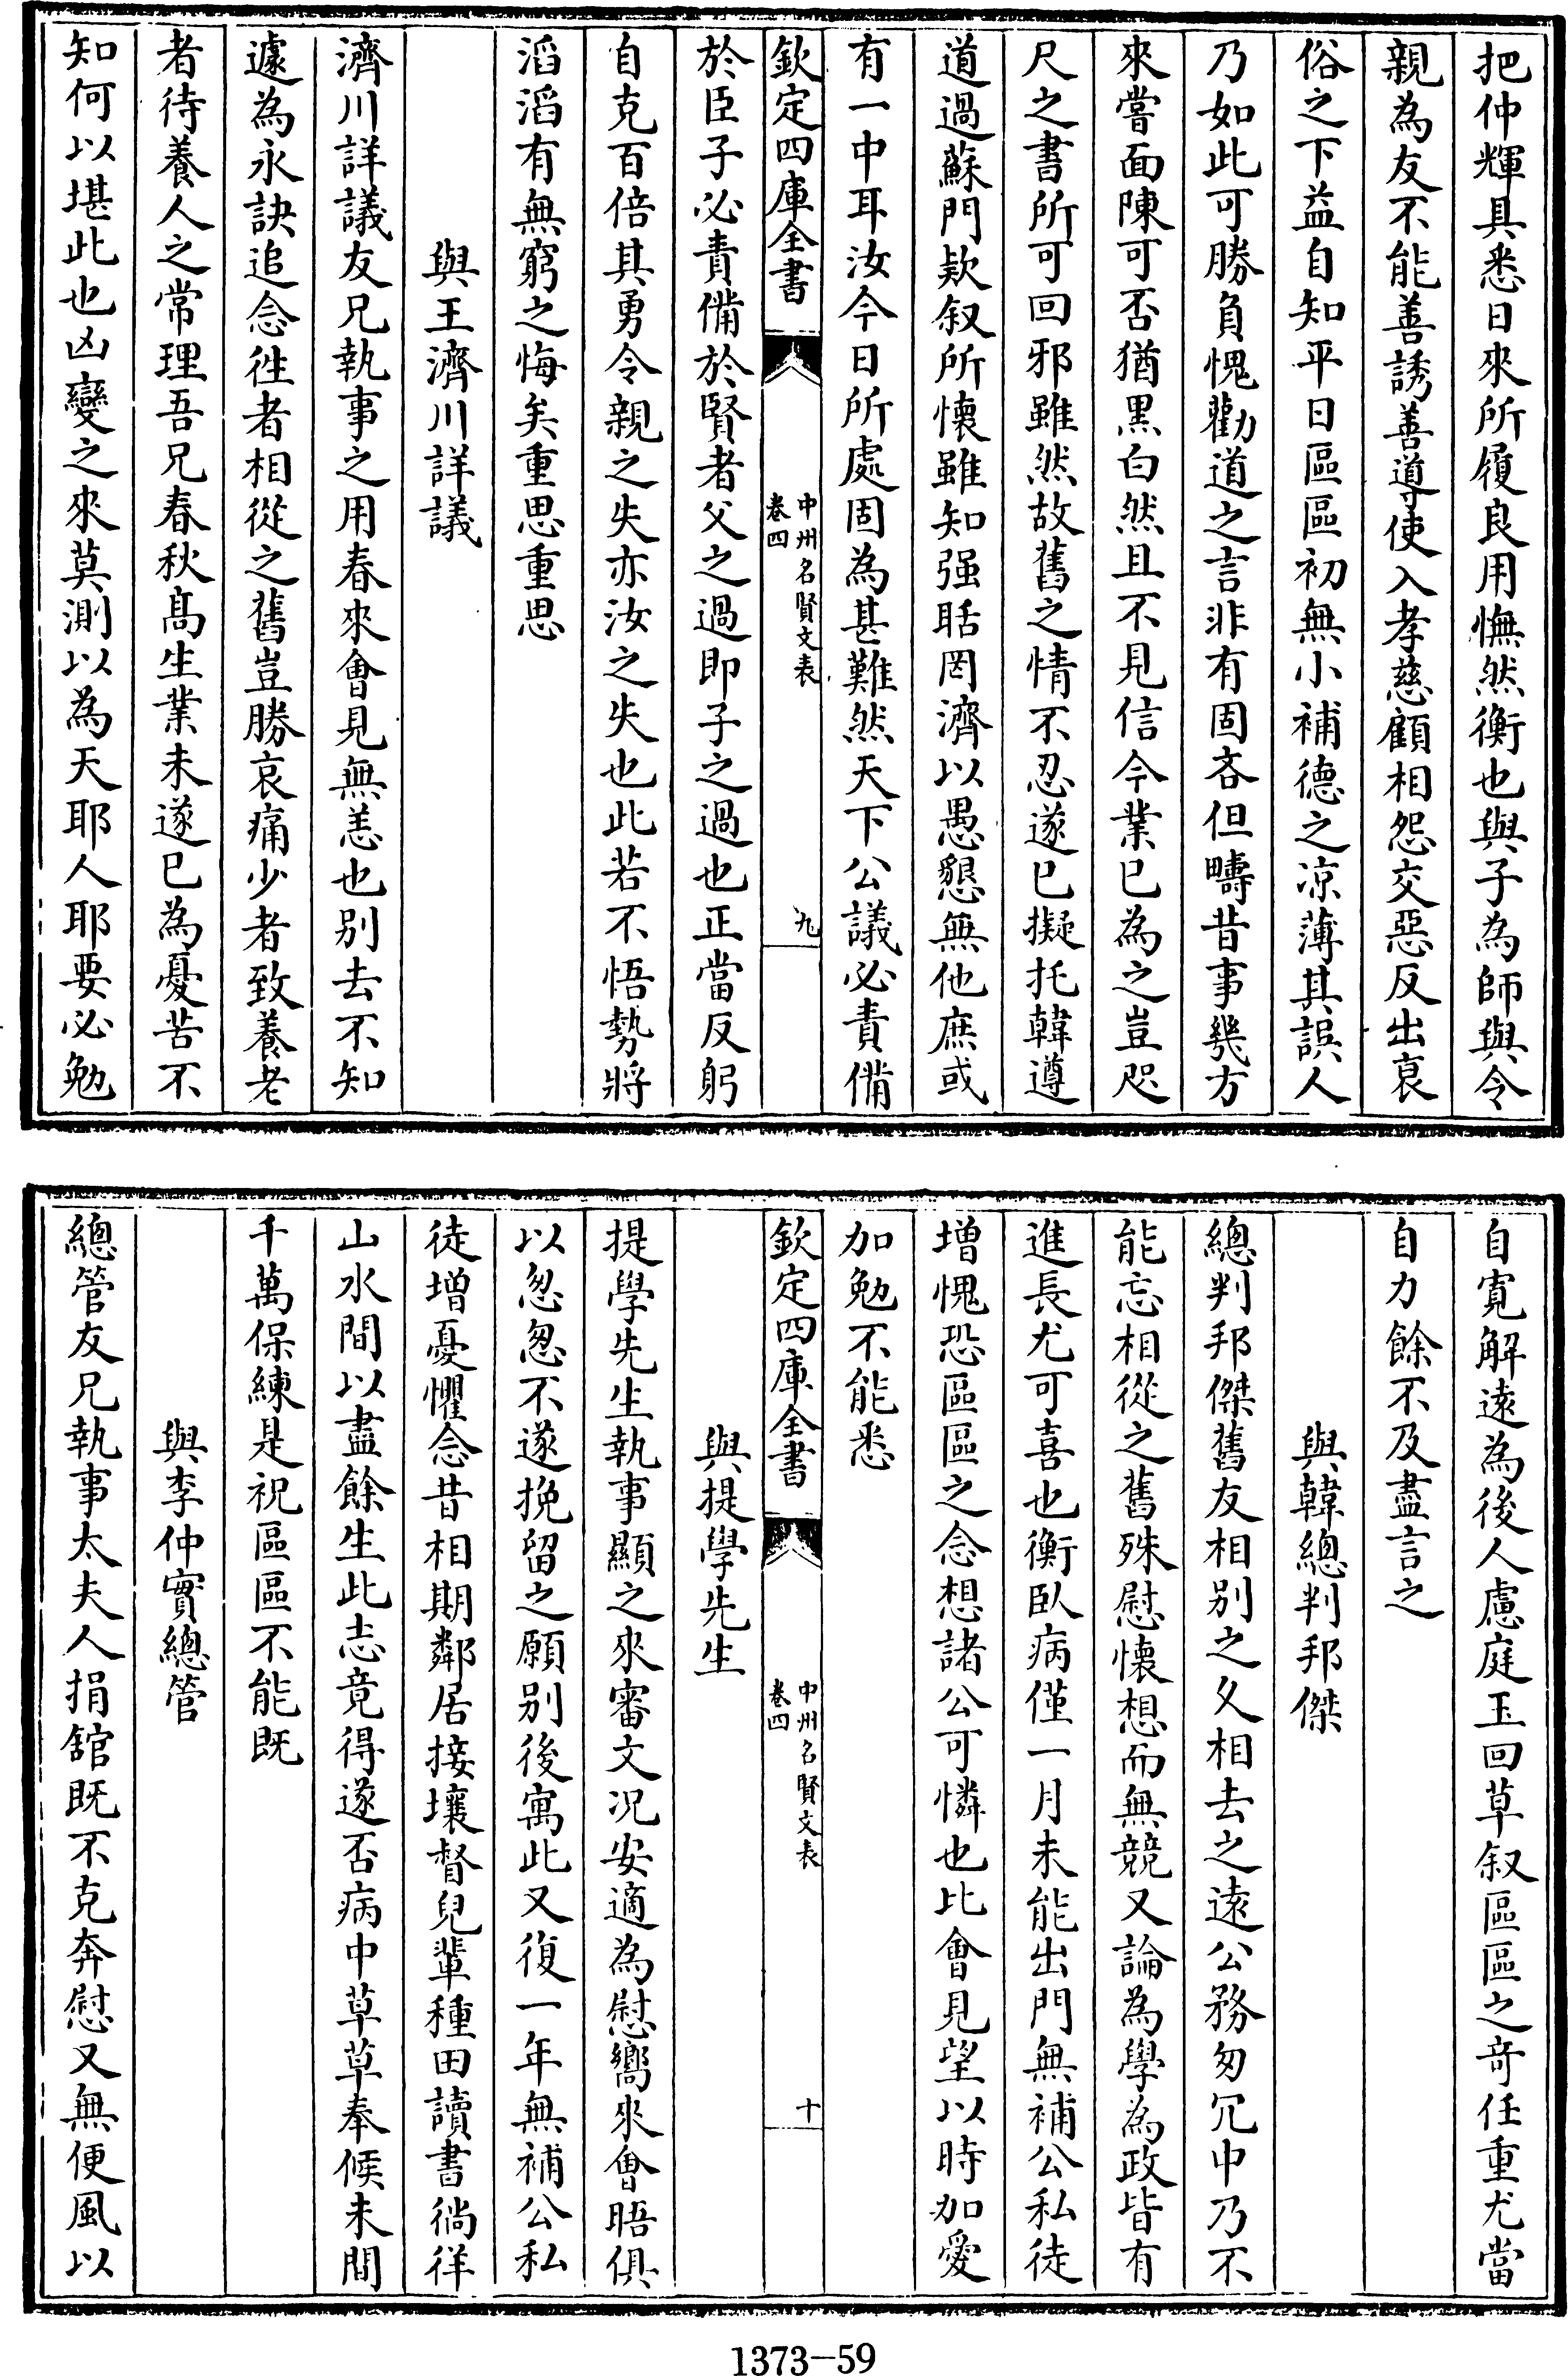 把仲輝具悉日來所履良用憮然衡也與子為師與令
親為友不能善誘善導使入孝慈顧相怨交惡反出衰
俗之下益自知平日區區初無小補德之凉薄其誤人
乃如此可勝負愧勸道之言非有固吝但疇昔事幾方
來嘗面陳可否猶黒白然且不見信今業已為之豈咫
尺之書所可回邪雖然故舊之情不忍遂已擬托韓遵
道過蘇門欵叙所懷雖知强聒罔濟以愚懇無他庶或
有一中耳汝今日所處固為甚難然天下公議必責備
欽定四庫全書
中州名賢文表
卷四
九
於臣子必責備於賢者父之過即子之過也正當反躬
自克百倍其勇令親之失亦汝之失也此若不悟勢將
滔滔有無窮之悔矣重思重思
與王濟川詳議
濟川詳議友兄執事之用春來會見無恙也别去不知
遽為永訣追念徃者相從之舊豈勝哀痛少者致養老
者待養人之常理吾兄春秋髙生業未遂已為憂苦不
知何以堪此也凶變之來莫測以為天耶人耶要必勉
自寛解遠為後人慮庭玉回草叙區區之竒任重尤當
自力餘不及盡言之
與韓總判邦傑
總判邦傑舊友相别之久相去之遠公務匆冗中乃不
能忘相從之舊殊慰懷想而無競又論為學為政皆有
進長尤可喜也衡臥病僅一月未能出門無補公私徒
增愧恐區區之念想諸公可憐也比會見望以時加愛
加勉不能悉
欽定四庫全書
中州名賢文表
卷四
十
與提學先生
提學先生執事顯之來審文况安適為慰嚮來會晤俱
以怱怱不遂挽留之願别後寓此又復一年無補公私
徒增憂懼念昔相期鄰居接壤督兒輩種田讀書徜徉
山水間以盡餘生此志竟得遂否病中草草奉候未間
千萬保練是祝區區不能既
與李仲實總管
總管友兄執事太夫人捐舘既不克奔慰又無便風以
1373-59